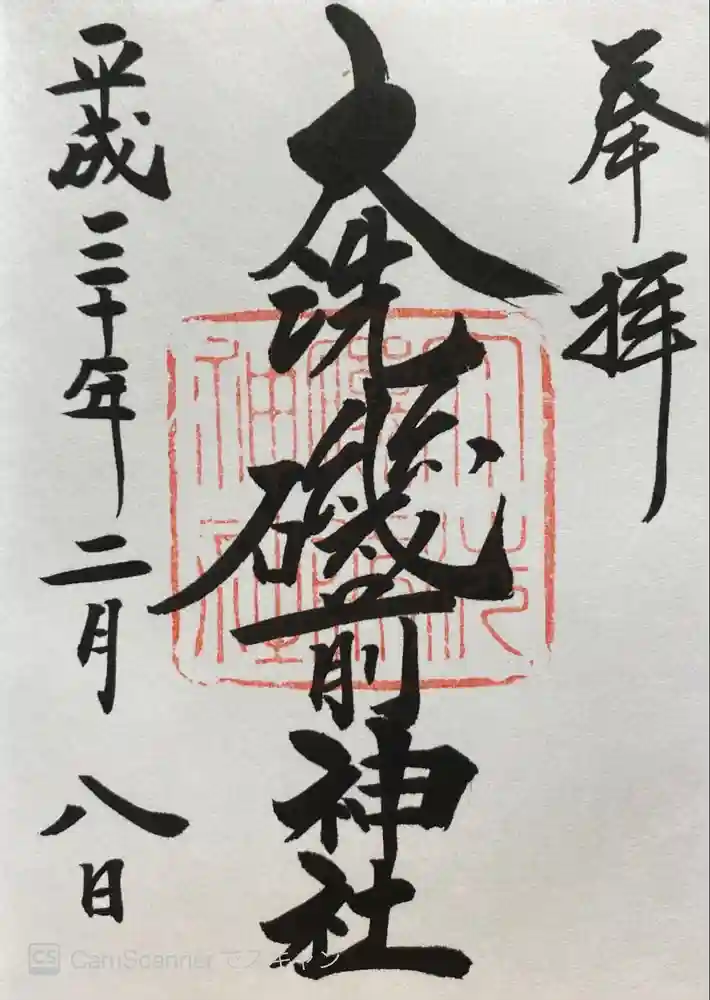 奉拝
大洗磯前神社
平成三十年二月八日
CS CamScanner でスキャン